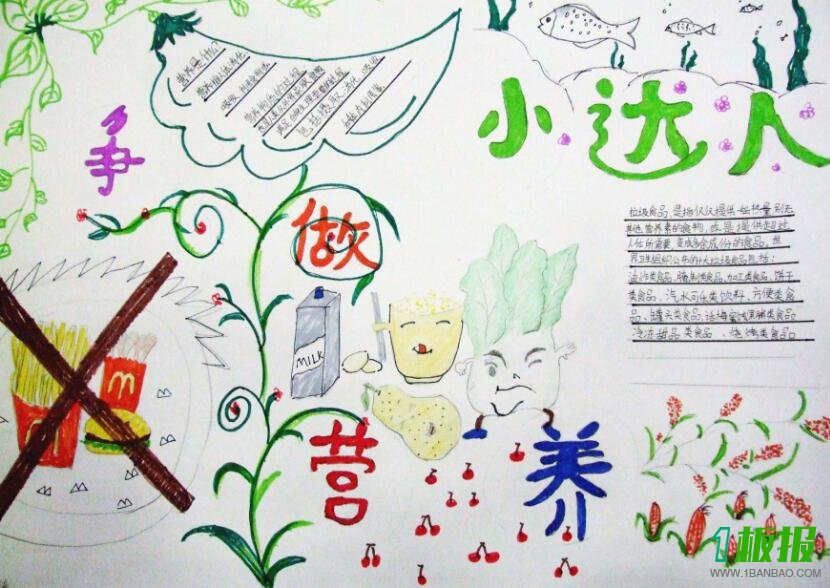 争
做
营
养
小达人
营养是什么?
MILK
垃圾食品,是指仅仅提供一些热量,别无
其他营养素的食物,或是提供超过
人体所需要,变成多余成份的食品。世
界卫生组织公布的十大垃圾食品包括:
油炸类食品、腌制类食品、加工类食品、饼干
类食品、汽水可乐类饮料、方便类食
品、罐头类食品、话梅蜜饯果脯类食品
冷冻甜品类食品、烧烤类食品
1板报
WWW.1BANBAO.COM